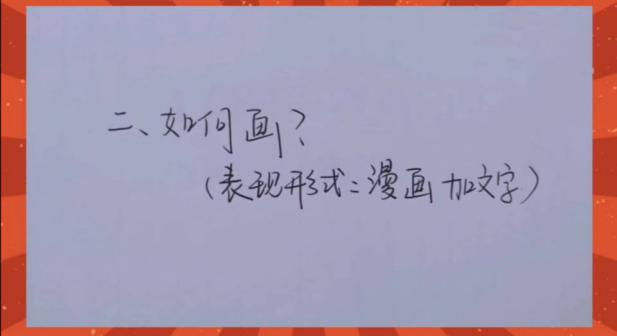 二、如何画?
(表现形式:漫画加文字)